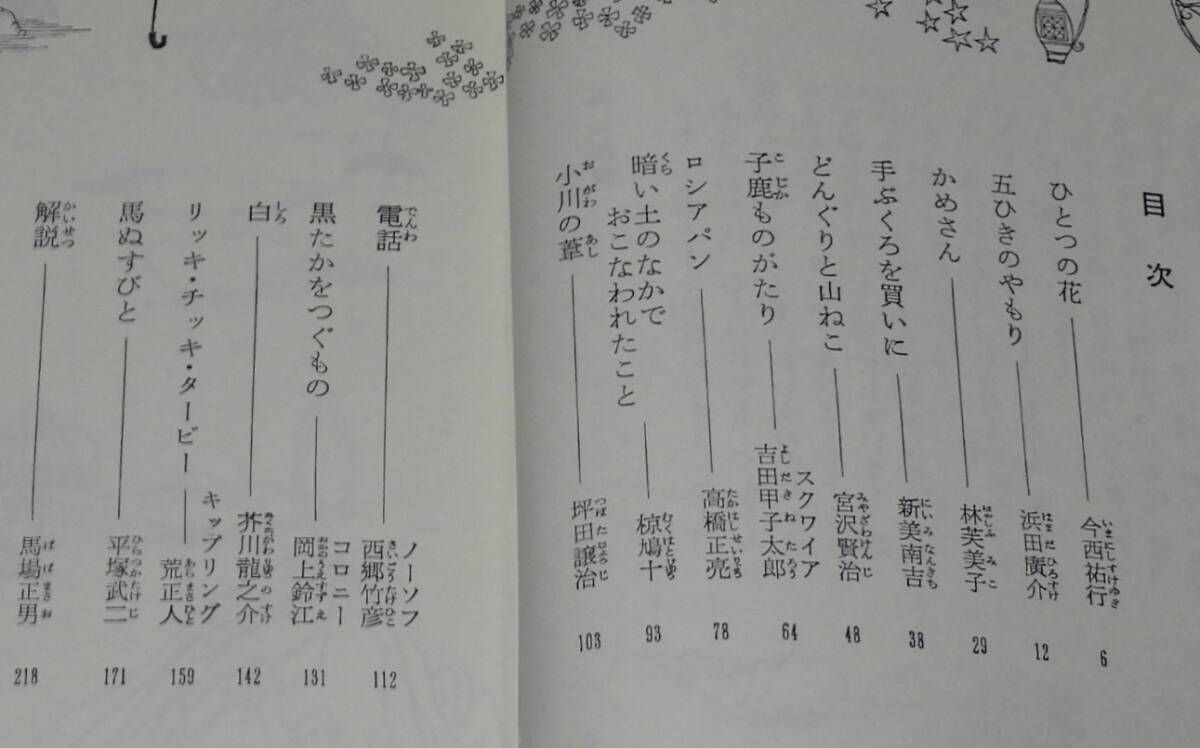 目次
ひとつの花――今西祐行 6
五ひきのやもり――浜田廣介 12
かめさん――林芙美子 29
手ぶくろを買いに――新美南吉 38
どんぐりと山ねこ――宮沢賢治 48
子鹿ものがたり――スクワイア
吉田甲子太郎 64
ロシアパン――高橋正亮 78
暗い土のなかで
おこなわれたこと――椋鳩十 93
小川の葦――坪田譲治 103
電話――ノーソフ
西郷竹彦 112
黒たかをつぐもの――コロニー
岡上鈴江 131
白――芥川龍之介 142
リッキ・チッキ・タービー――キップリング
荒正人 159
馬ぬすびと――平塚武二 171
解説――馬場正男 218